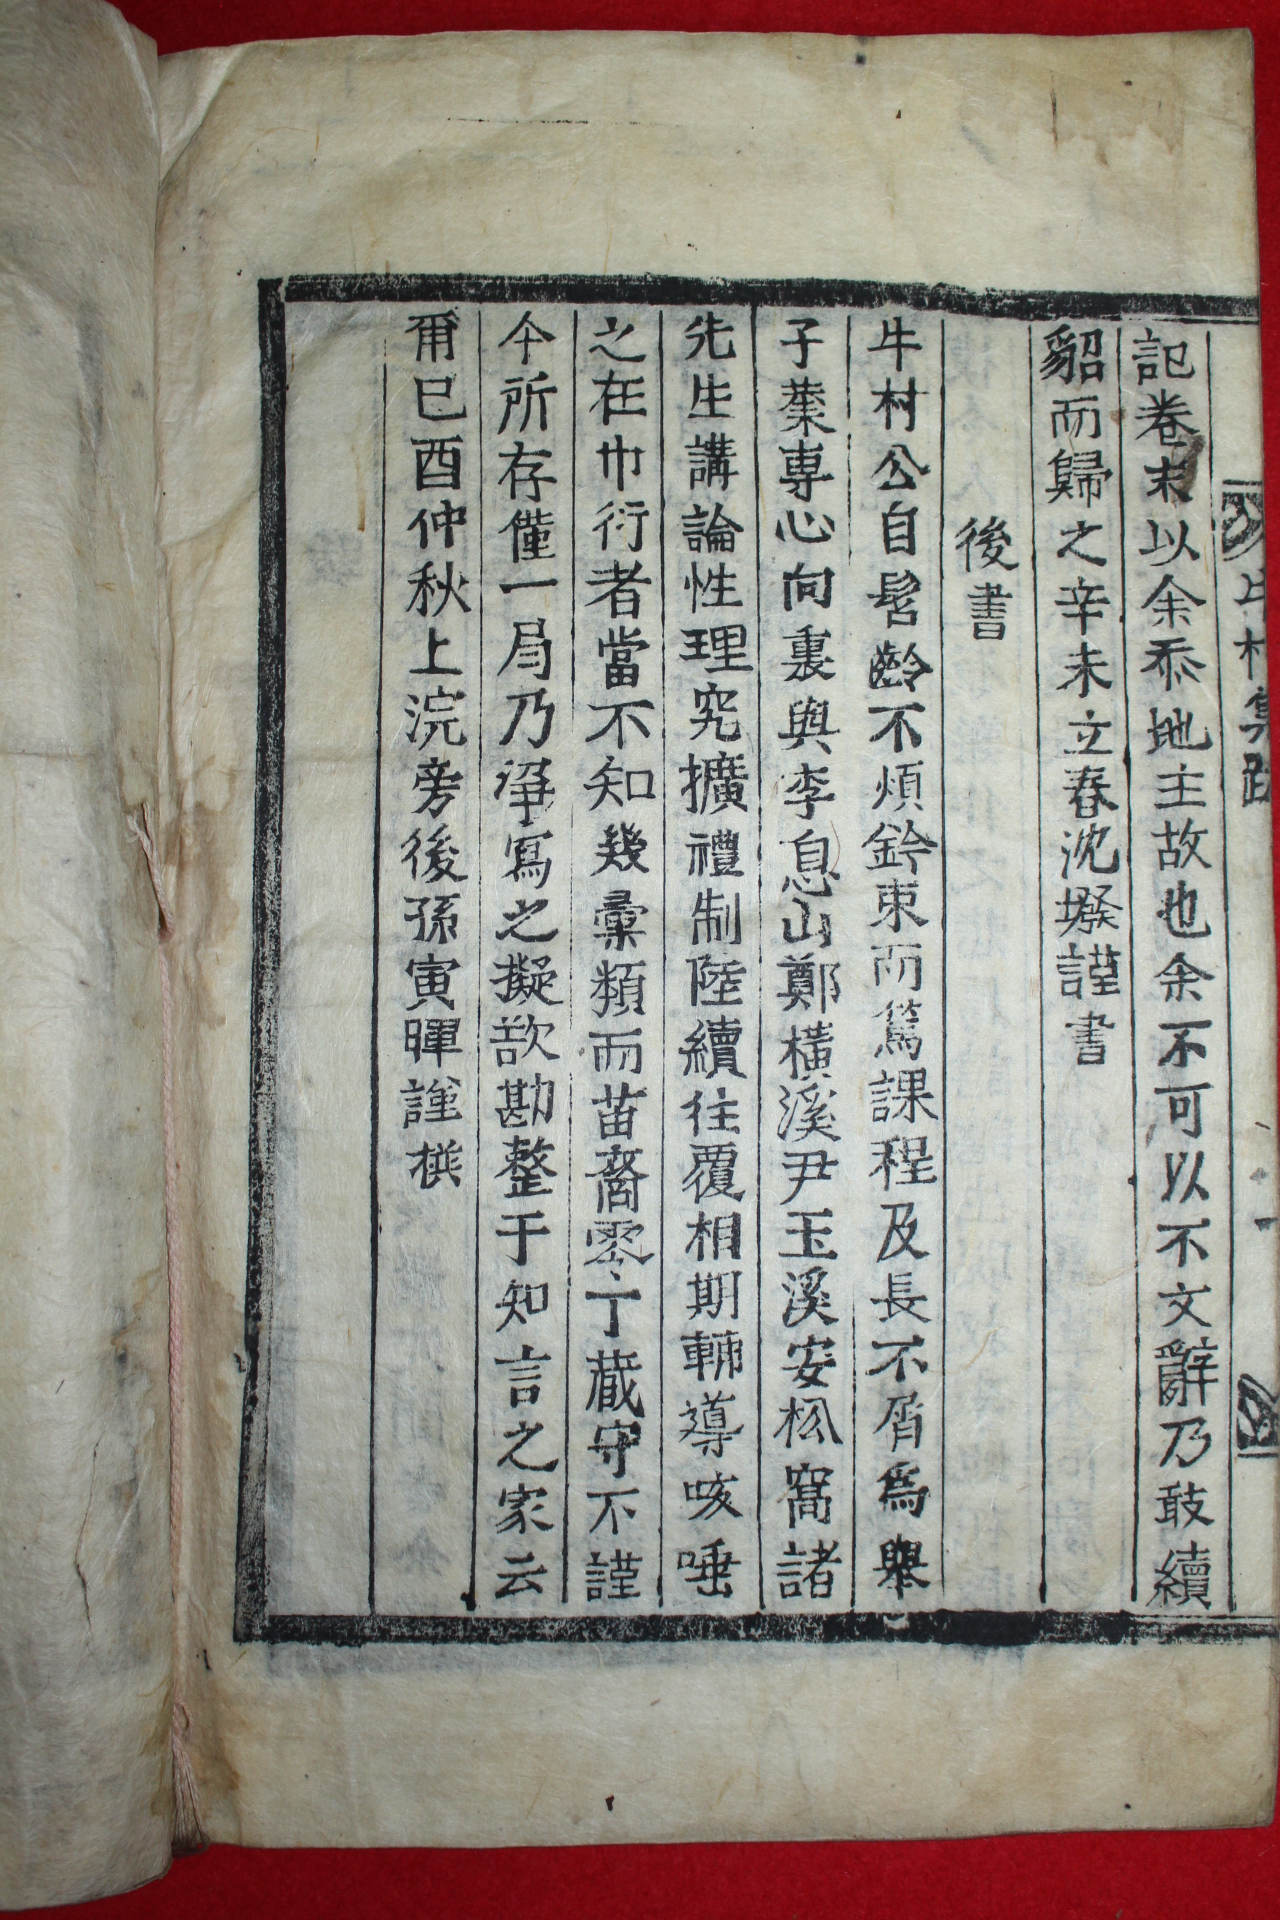 牛村集跋
記卷末以余忝地主故也余不可以不文辭乃敢續
貂而歸之辛未立春沈墢謹書
後書
牛村公自髫齡不煩鈐束而篤課程及長不屑爲擧
子業專心向裏與李息山鄭橫溪尹玉溪安松窩諸
先生講論性理究擴禮制陸續往覆相期輔導咳唾
之在巾衍者當不知幾彙類而苗裔零丁藏守不謹
今所存僅一局乃淨寫之擬歆勘整于知言之家云
爾巳酉仲秋上浣旁後孫寅暉謹樸